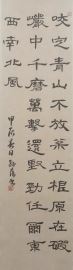 咬定青山不放松立根原在破
巖中千磨萬擊還堅勁任爾東
西南北風